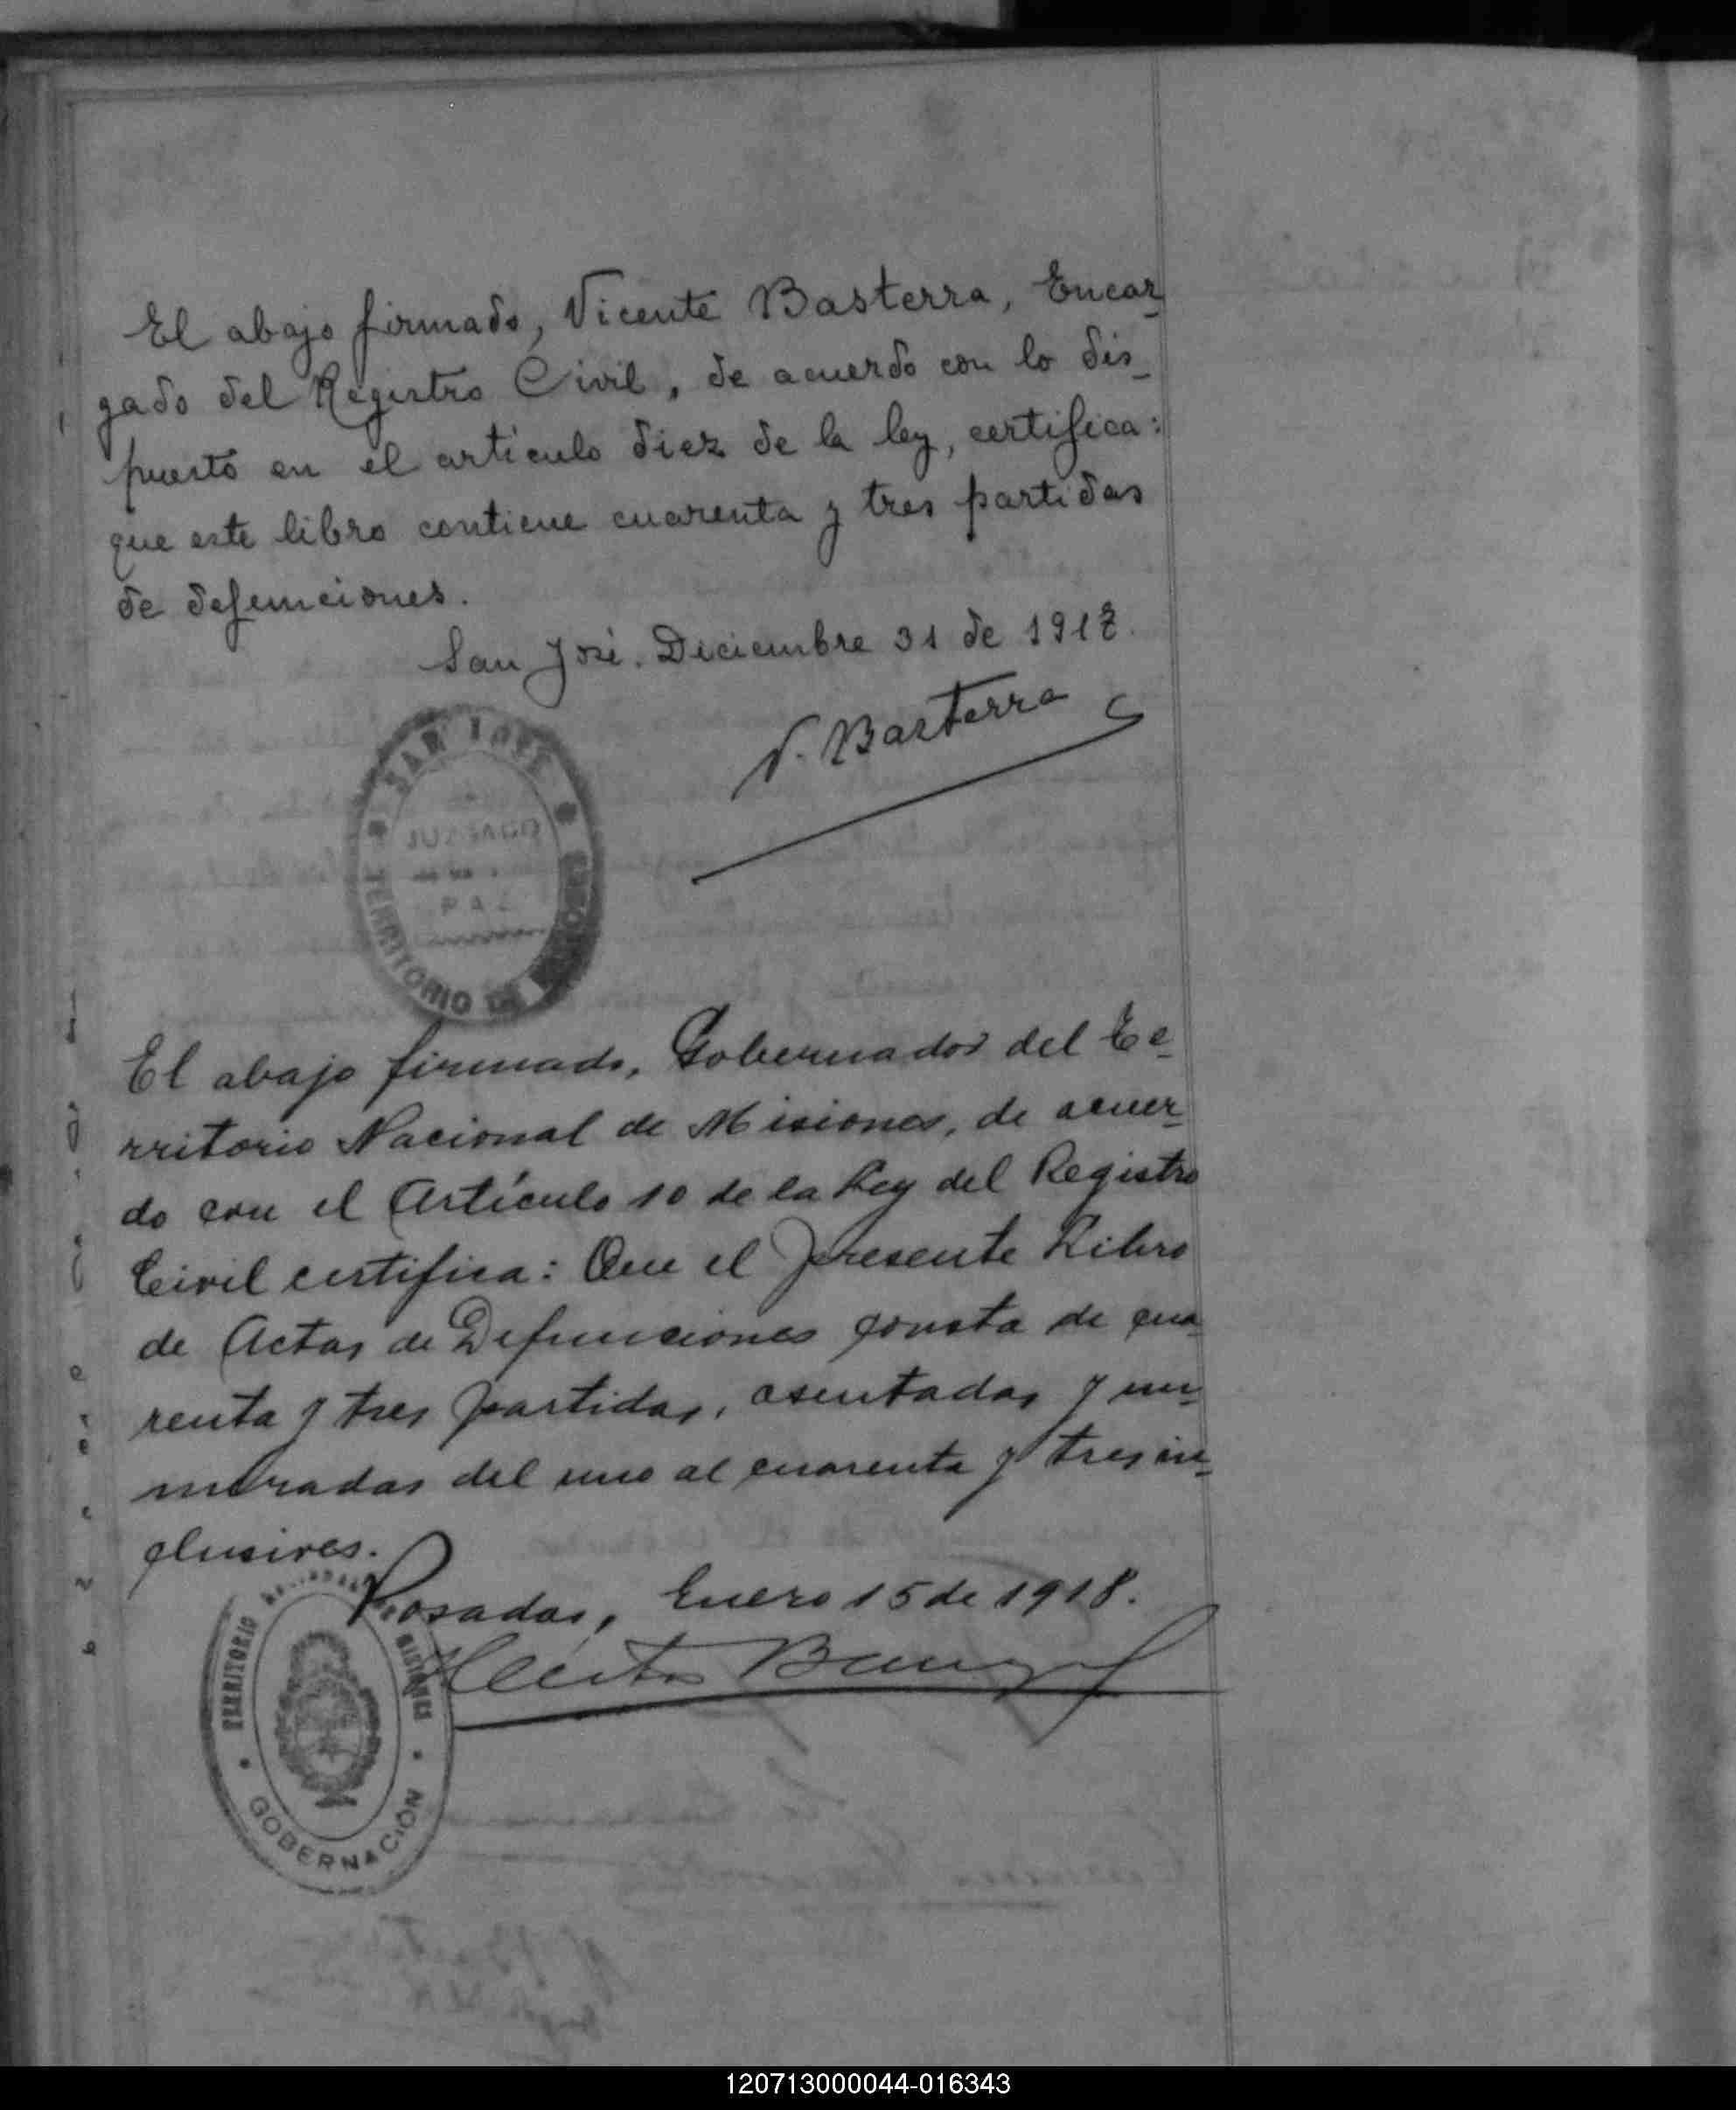 El abajo firmado, Vicente Basterra, Encar-
gado del Registro Civil, de acuerdo con lo dis-
puesto en el artículo diez de la ley, certifica:
que este libro contiene cuarenta y tres partidas
de defunciones.
San José. Diciembre 31 de 1917.
V. Basterra
SAN JOSE
JUZGADO
DE
PAZ
TERRITORIO DE MISIONES
El abajo firmado, Gobernador del Te-
rritorio Nacional de Misiones, de acuer-
do con el Artículo 10 de la Ley del Registro
Civil certifica: Que el presente Libro
de Actas de Defunciones consta de cua-
renta y tres partidas, asentadas y nu-
meradas del uno al cuarenta y tres in-
clusives.
Posadas, Enero 15 de 1918.
TERRITORIO
MISIONES
GOBERNACIÓN
120713000044-016343